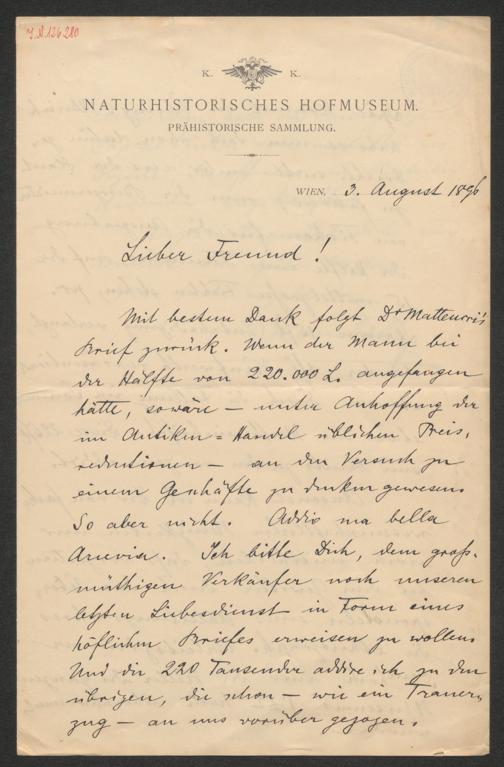 J.N. 126.280
K. K.
NATURHISTORISCHES HOFMUSEUM.
PRÄHISTORISCHE SAMMLUNG.
WIEN, 3. August 1896
Lieber Freund!
Mit bestem Dank folgt Dr
Brief zurück. Wenn der Mann bei
der Hälfte von 220.000 L. angefangen
hätte, so wäre – unter Anhoffung der
im Antiken-Handel üblichen Preis,
reductionen – an den Versuch zu
einem Geschäfte zu denken gewesen.
So aber nicht. Addio ma bella
Ich bitte Dich, dem gross-
müthigen Verkäufer noch unseren
letzten Liebesdienst in Form eines
höflichen Briefes erweisen zu wollen.
Und die 220 Tausender addire ich zu den
übrigen, die schon – wie ein Trauer,
zug – an uns vorüber gezogen.